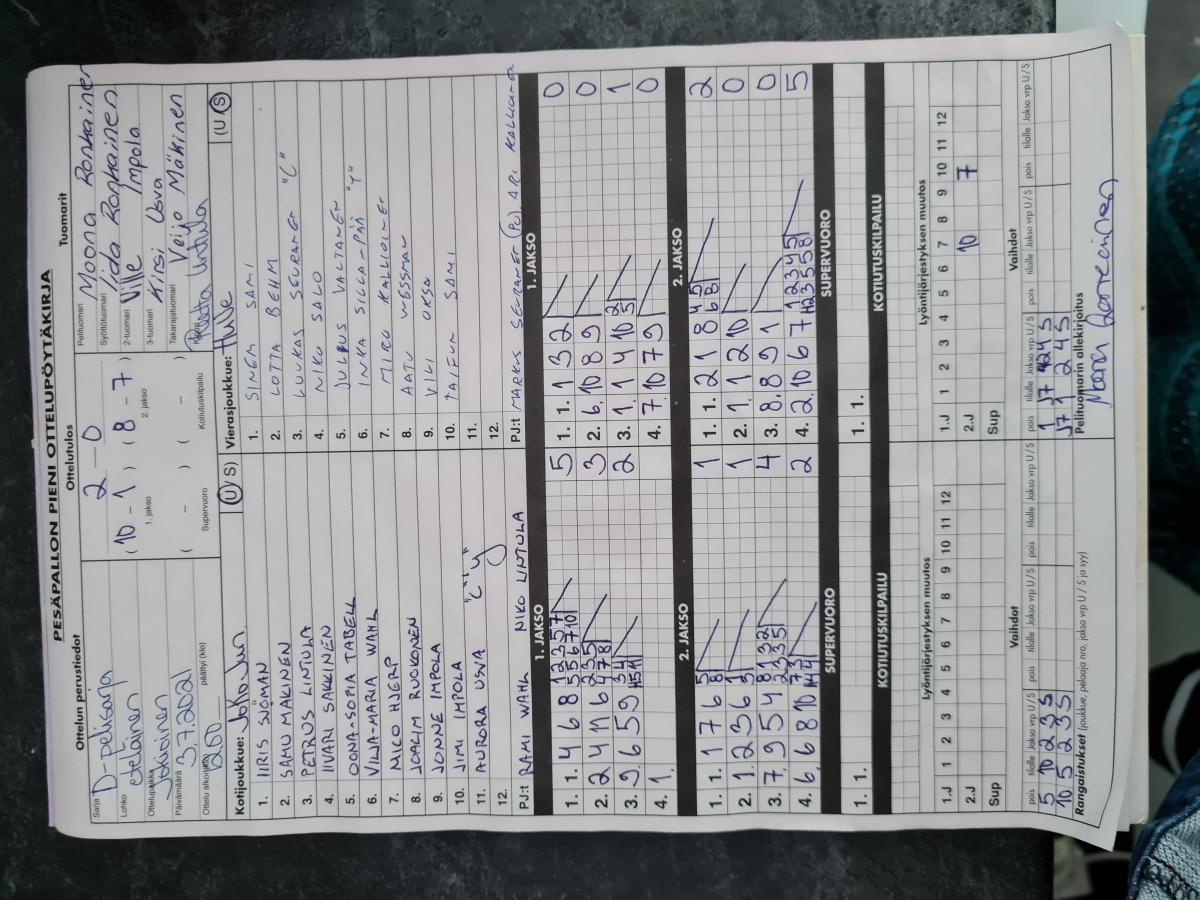 PESÄPALLON PIENI OTTELUPÖYTÄKIRJA
Ottelun perustiedot
Ottelutulos
Tuomarit
Sarja D-pelisarja
Lohko eteläinen
Ottelupaikka Jokioinen
Päivämäärä 3.7.2021
Ottelu alkoi (klo) 12.00 päättyi (klo)
2 - 0
(10 - 1) (8 - 7)
1. jakso 2. jakso
( - ) ( - )
Supervuoro Kotiutuskilpailu
Pelituomari Moona Ronkainen
Syöttötuomari Iida Ronkainen
2-tuomari Ville Impola
3-tuomari Kirsi Usva
Takarajatuomari Veijo Mäkinen
Lintula
Kotijoukkue: JoKo Jun. (U/S)
1. IIRIS SJÖMAN
2. SAMU MÄKINEN
3. PETRUS LINTULA
4. IIVARI SAKKINEN
5. OONA-SOFIA TABELL
6. VILJA-MARIA WAHL
7. NICO HJERP
8. JOACIM RUOKONEN
9. JONNE IMPOLA
10. JIMI IMPOLA
11. AURORA USVA "C"
12.
PJ:t RAMI WAHL NIKO LINTULA
Vierasjoukkue: HuLe (U/S)
1. SINEM SAMI
2. LOTTA BEHM
3. LUUKAS SEURANEN "C"
4. NIKO SALO
5. JULIUS VALTANEN
6. INKA SILLA-PÄÄ "Y"
7. MIKO KALLIOINEN
8. AATU WESSMAN
9. VILI OKSA
10. TAIFUN SAMI
11.
12.
PJ:t MARKUS SEURANEN (PJ), ARI KALLIOINEN
1. JAKSO
1. 1. 4 6 8 5 5
2. 2 4 11 6 3
3. 9 6 5 9 2
4. 1.
1. JAKSO
1. 1. 1 3 2 0
2. 6 10 8 9 0
3. 1 1 4 10 1
4. 7 10 7 9 0
2. JAKSO
1. 1. 1 7 6 1
2. 1 2 3 6 1
3. 7 9 5 4 4
4. 6 6 8 10 2
2. JAKSO
1. 1. 2 1 8 2
2. 1 1 2 10 0
3. 8 8 9 1 0
4. 2 10 6 7 5
SUPERVUORO
1. 1.
SUPERVUORO
1. 1.
KOTIUTUSKILPAILU
KOTIUTUSKILPAILU
Lyöntijärjestyksen muutos
1 2 3 4 5 6 7 8 9 10 11 12
1.J
2.J
Sup
Lyöntijärjestyksen muutos
1 2 3 4 5 6 7 8 9 10 11 12
1.J
2.J 10 7
Sup
Vaihdot
pois tilalle Jakso vrp U / S pois tilalle Jakso vrp U / S pois tilalle Jakso vrp U / S
5 10 2 3 S
10 5 2 3 S
Vaihdot
pois tilalle Jakso vrp U / S pois tilalle Jakso vrp U / S pois tilalle Jakso vrp U / S
J7 1 2 4 S
Rangaistukset (joukkue, pelaaja nro, jakso vrp U / S ja syy)
Pelituomarin allekirjoitus
Moona Ronkainen